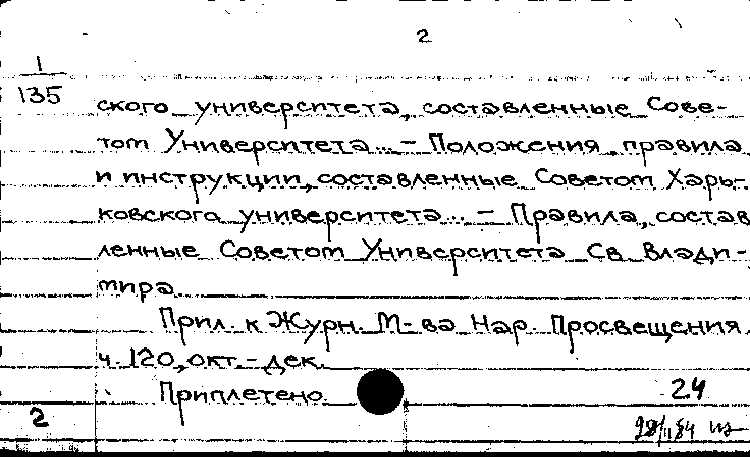 2
1
135
ского университета, составленные Сове-
том Университета... – Положения, правила
и инструкции, составленные Советом Харь-
ковского университета... – Правила, состав
ленные Советом Университета Св. Влади-
мира.
Прил. к Журн. М-ва Нар. Просвещения,
ч. 120, окт. – дек.
Приплетено.
24
2